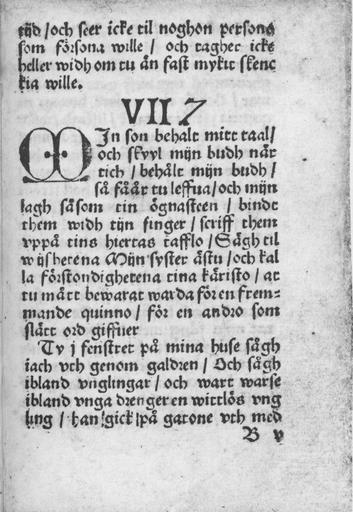 tijd / och seer icke til noghon persons
som försona wille / och tagher icke
heller widh om tu än fast mykit skenc
kia wille.
VII 7
MIn son behalt mitt taal /
och skyyl mijn budh när
tich / behålt mijn budh /
så fåår tu leffua / och mijn
lagh såsom tin ögnasteen / bindt
them widh tijn finger / scriff them
vppå tins hiertas tafflo / Sägh til
wijshetena Mijn syster ästu / och kal
la förstondighetena tina käristo / at
tu mått bewarat warda för en frem-
mande quinno / för en andro som
slätt ord giffuer
Ty j fenstret på mina huse sågh
iach vth genom galdren / Och sågh
ibland vnglingar / och wart warse
ibland vnga drenger en wittlös vng
ling / han gick på gatone vth med
B v